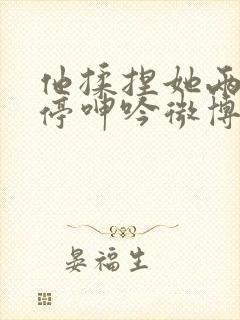 他揉捏她两
停呻吟微博
晏福生